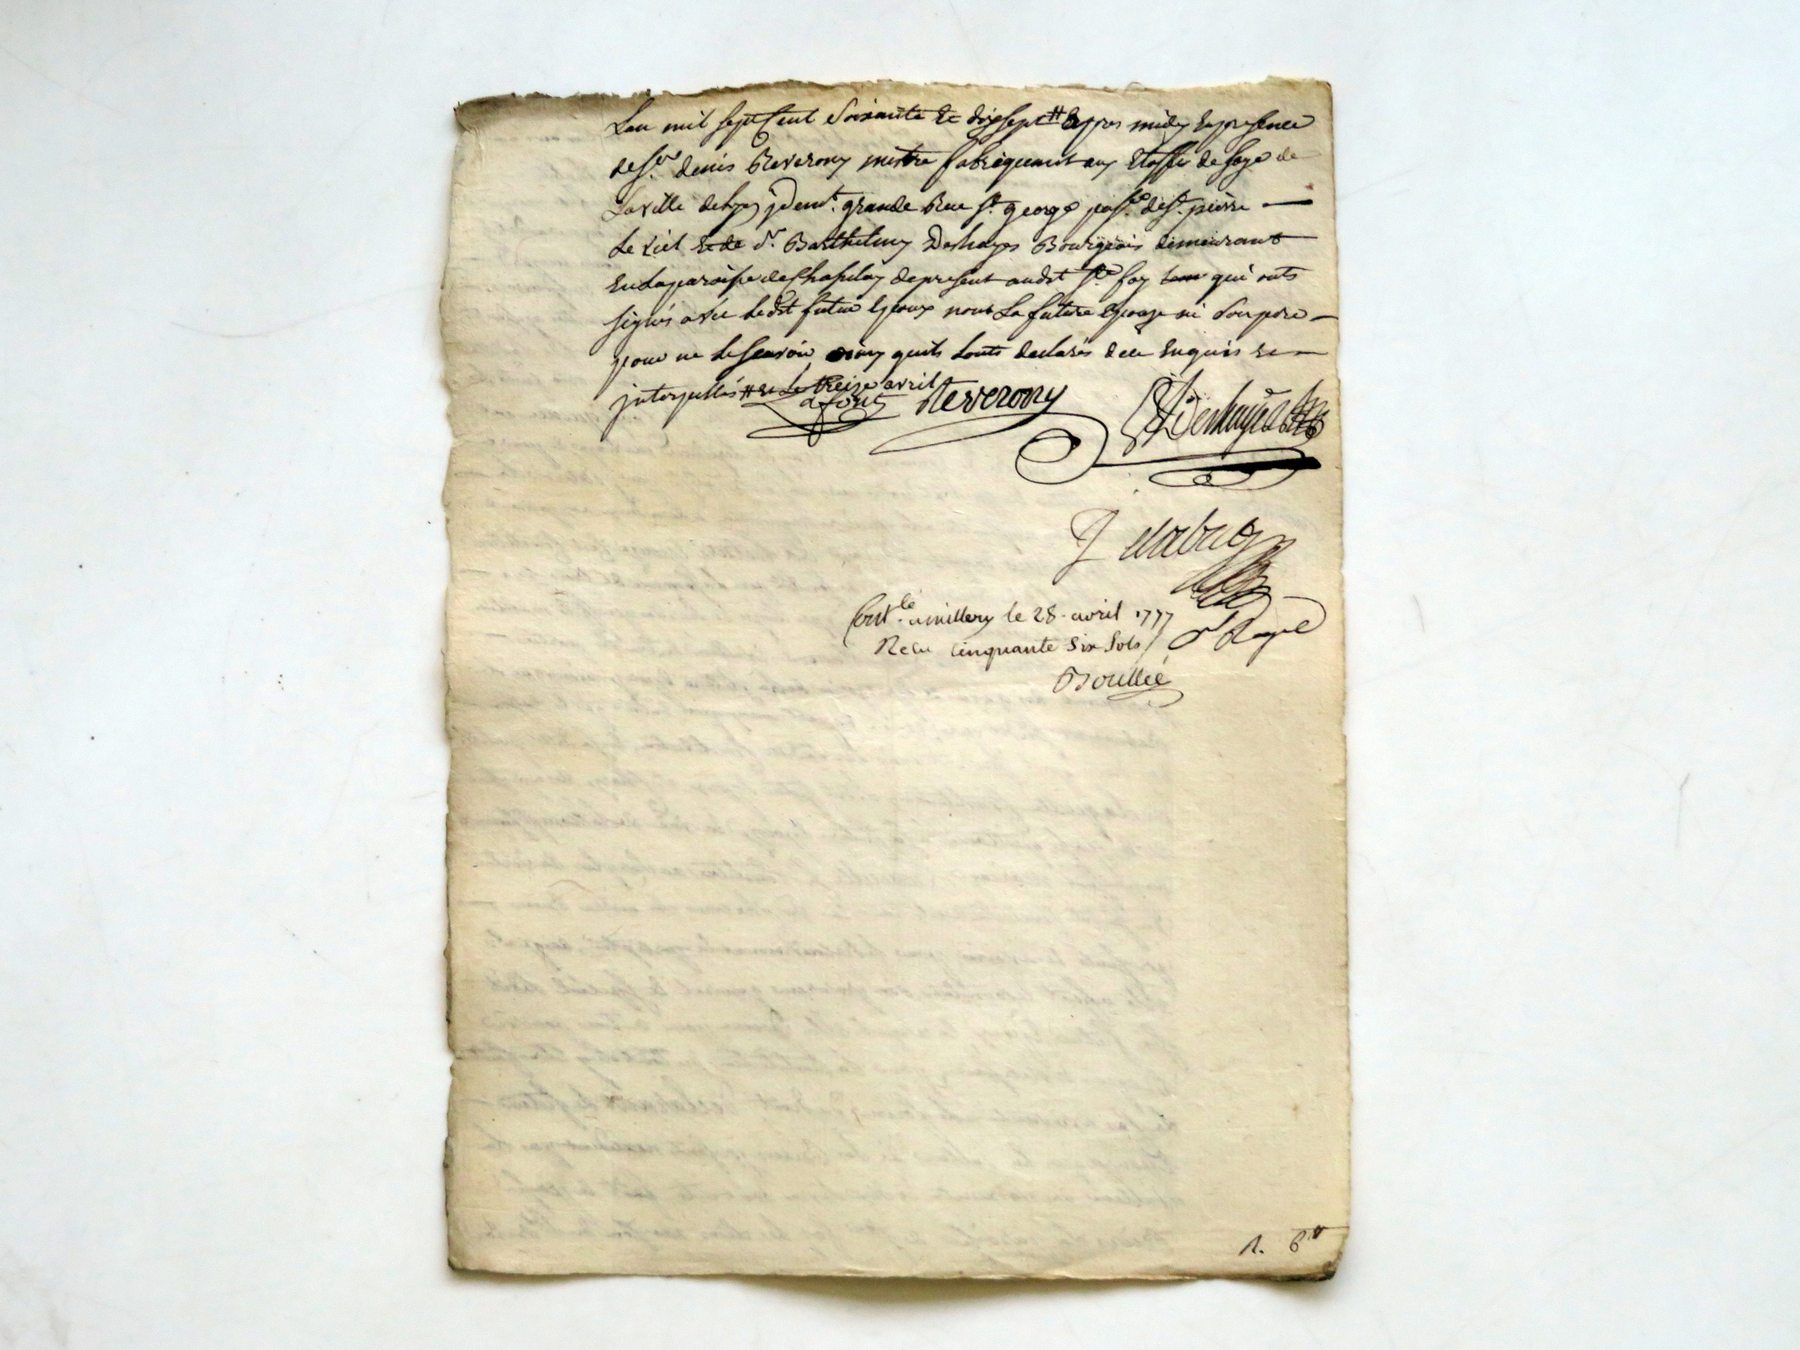 Lan mil sept Cent Soixante Et dixsept # Appres midy En presence
de Sr. denis Reverony mettre fabriquant aux Etoffes de Soye de
La Ville de Lyon y Demt. grande Rue St. george parse. de St. pierre
Le viel Et de Sr. Barthelmy Deshayes Bourgeois demeurant
En La paroisse de Chasselay de present audit Ste foy qui onts
signés avec Ledit futur Epoux non La future Epouze ni Son pere
pour ne le Scavoir ainsy quils Lonts declarés de ce Enquis Et
interpellés # Et Le treize avril
afont Reverony Deshayes
J
Contlé. a millery le 28. avril 1777
Recu Cinquante Six Sols
Boullée
R. 6